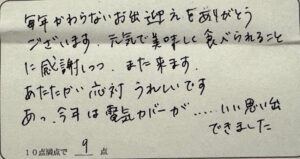 毎年かわらないお出迎えをありがとう
ございます。元気で美味しく食べられること
に感謝しつつ、また来ます。
あたたかい応対うれしいです
あっ、今年は電気カバーが……いい思い出
できました
10点満点で 9 点